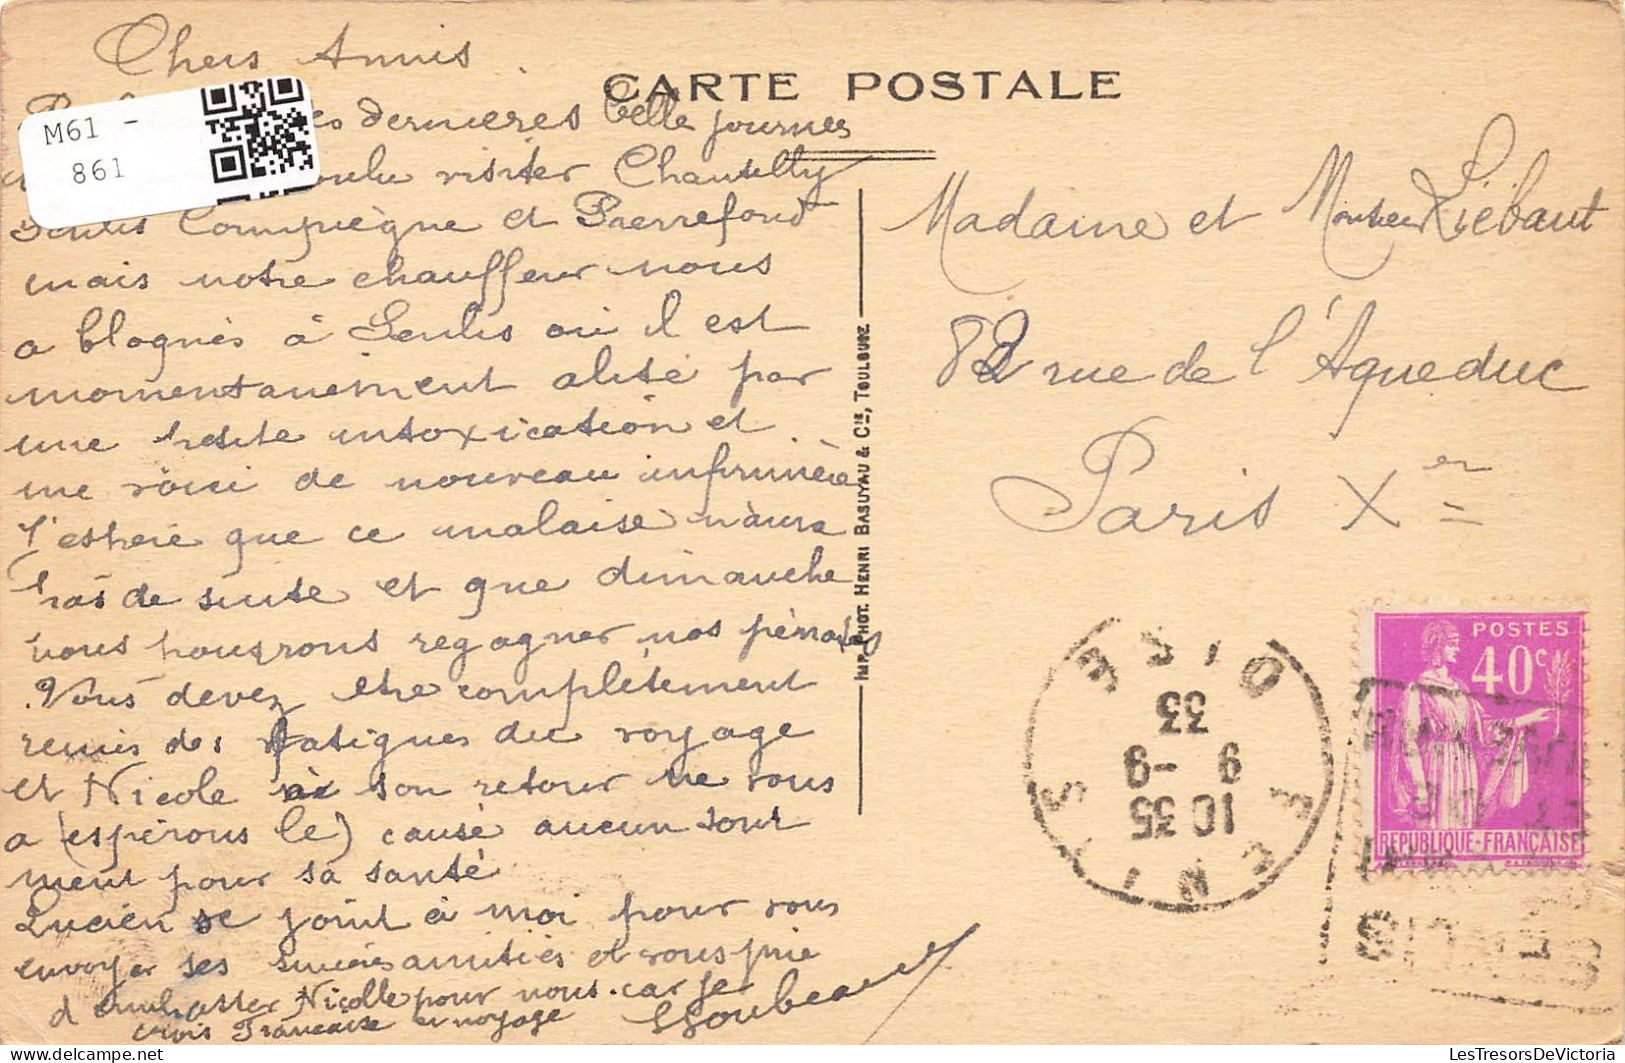 Chers Amis
M61 -
861
dernières belle journes
visiter Chantilly
Senlis Compiègne et Pierrefond
mais notre chauffeur nous
a bloqués à Senlis où il est
momentanement alité par
une petite intoxication et
me voici de nouveau infirmière
J'espère que ce malaise n'aura
pas de suite et que dimanche
nous pourrons regagner nos pénates
Vous devez etre complètement
remis des fatigues du voyage
et Nicole à son retour ne vous
a (espérons le) causé aucun tour
ment pour sa santé
Lucien se joint à moi pour vous
envoyer ses sincères amitiés et vous prie
d'embrasser Nicolle pour nous. car je
crois Francaise en voyage
CARTE POSTALE
Madame et Monsieur Liébaut
82 rue de l'Aqueduc
Paris Xer
IMP. PHOT. HENRI BASUYAU & CIE, TOULOUSE
POSTES
40c
REPUBLIQUE-FRANÇAISE
SENLIS
OISE
10 35
9 -9
33
LesTresorsDeVictoria.com